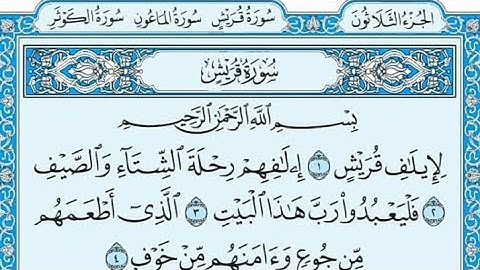 الجزء الثلاثون سورة قريش سورة الماعون سورة الكوثر
سورة قريش
بسم الله الرحمن الرحيم
لِإِيلَٰفِ قُرَيْشٍ ١ إِۦلَٰفِهِمْ رِحْلَةَ ٱلشِّتَآءِ وَٱلصَّيْفِ
٢ فَلْيَعْبُدُوا۟ رَبَّ هَٰذَا ٱلْبَيْتِ ٣ ٱلَّذِىٓ أَطْعَمَهُم
مِّن جُوعٍ وَءَامَنَهُم مِّنْ خَوْفٍۭ ٤